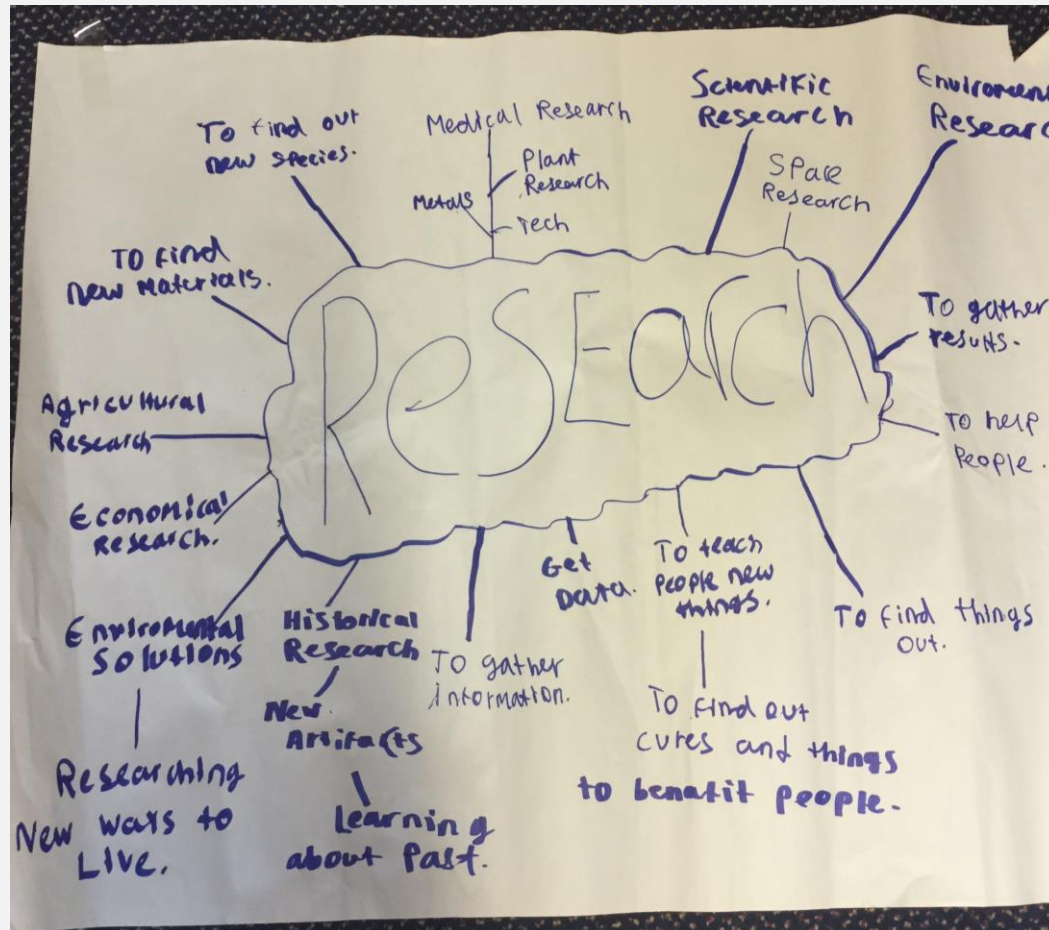 To find out
new species.
Medical Research
Plant
Research
Metals
Tech
Scientific
Research
Space
Research
Enviromen
Researc
To find
new Materials.
ReSEarch
To gather
results.
Agricultural
Research
To help
People.
Economical
Research.
Enviromental
Solutions
Researching
New ways to
Live.
Historical
Research
New
Artifacts
Learning
about Past.
To gather
information.
Get
Data.
To teach
People new
things.
To find out
cures and things
to benafit people.
To find things
Out.